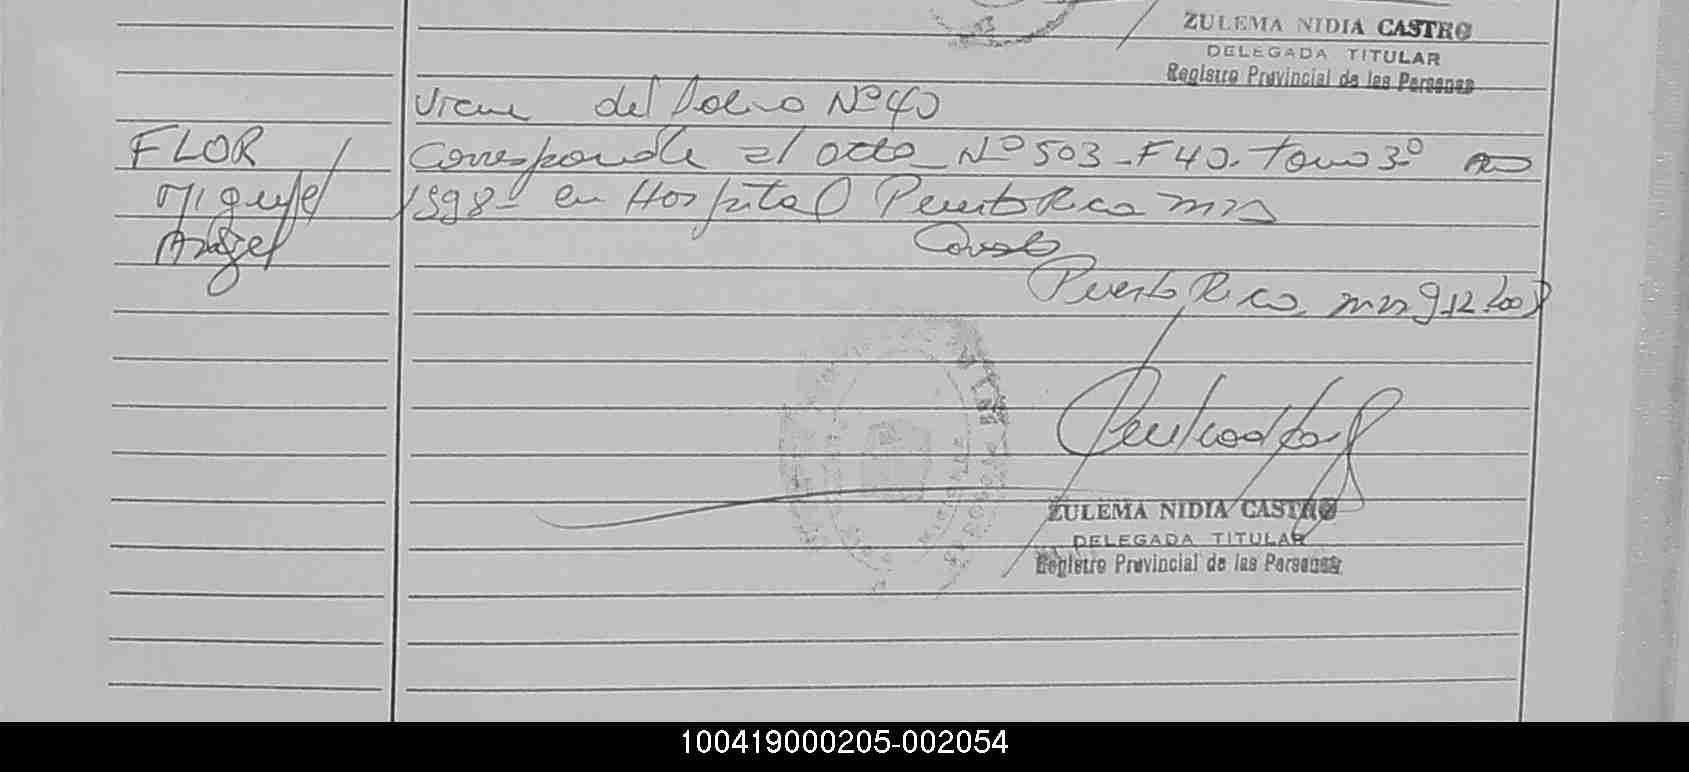 ZULEMA NIDIA CASTRO
DELEGADA TITULAR
Registro Provincial de las Personas
Viene del Folio Nº 40
FLOR
Miguel
Angel
Corresponde al acta Nº 503 - F 40. Tomo 3º año
1998 - en Hospital Puerto Rico mns
Puerto Rico, mns 9.12.2008
ZULEMA NIDIA CASTRO
DELEGADA TITULAR
Registro Provincial de las Personas
100419000205-002054